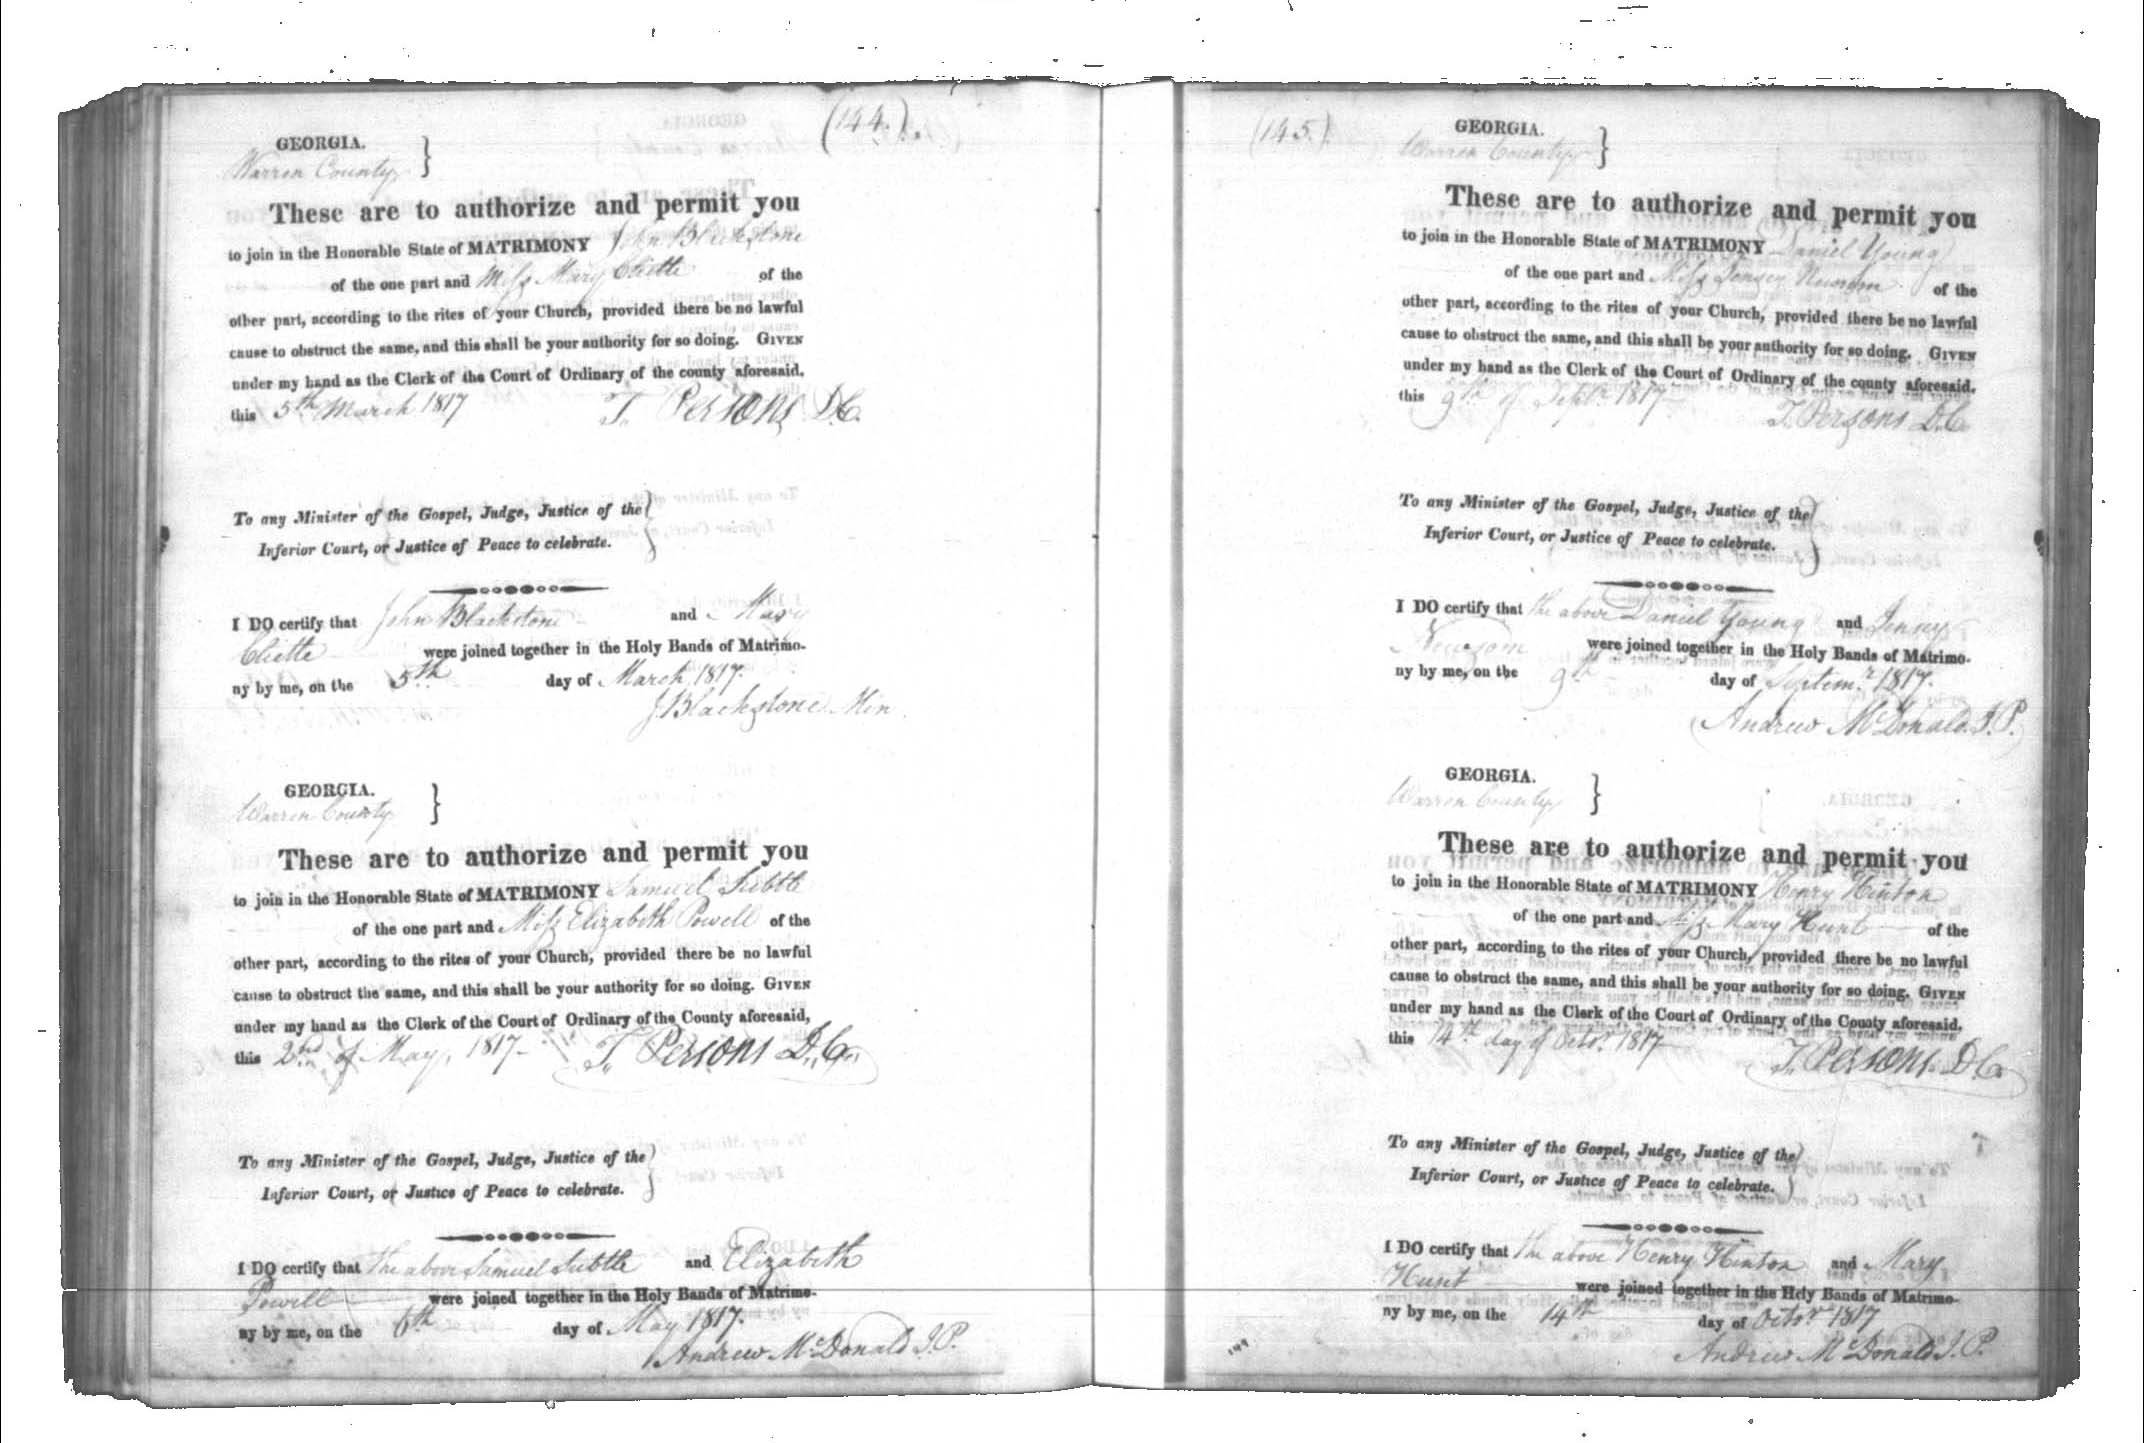 (144.)
GEORGIA.
Warren County }
These are to authorize and permit you
to join in the Honorable State of MATRIMONY John Blackstone
of the one part and Miss Mary Cliette of the
other part, according to the rites of your Church, provided there be no lawful
cause to obstruct the same, and this shall be your authority for so doing. GIVEN
under my hand as the Clerk of the Court of Ordinary of the county aforesaid.
this 5th March 1817 T. Persons D.C.
To any Minister of the Gospel, Judge, Justice of the
Inferior Court, or Justice of Peace to celebrate. }
I DO certify that John Blackstone and Mary
Cliette were joined together in the Holy Bands of Matrimo-
ny by me, on the 5th day of March 1817.
J. Blackstone Min
GEORGIA.
Warren County }
These are to authorize and permit you
to join in the Honorable State of MATRIMONY Samuel
of the one part and Miss Elizabeth Powell of the
other part, according to the rites of your Church, provided there be no lawful
cause to obstruct the same, and this shall be your authority for so doing. GIVEN
under my hand as the Clerk of the Court of Ordinary of the County aforesaid,
this 2nd of May, 1817 T. Persons D.C.
To any Minister of the Gospel, Judge, Justice of the
Inferior Court, or Justice of Peace to celebrate. }
I DO certify that the above Samuel and Elizabeth
Powell were joined together in the Holy Bands of Matrimo-
ny by me, on the 6th day of May 1817.
Andrew McDonald J.P.
(145.)
GEORGIA.
Warren County }
These are to authorize and permit you
to join in the Honorable State of MATRIMONY Daniel Young
of the one part and Miss of the
other part, according to the rites of your Church, provided there be no lawful
cause to obstruct the same, and this shall be your authority for so doing. GIVEN
under my hand as the Clerk of the Court of Ordinary of the county aforesaid.
this 9th of Septr 1817 T. Persons D.C.
To any Minister of the Gospel, Judge, Justice of the
Inferior Court, or Justice of Peace to celebrate. }
I DO certify that the above Daniel Young and Jenny
Newsom were joined together in the Holy Bands of Matrimo-
ny by me, on the 9th day of Septemr 1817.
Andrew McDonald J.P.
GEORGIA.
Warren County }
These are to authorize and permit you
to join in the Honorable State of MATRIMONY Henry Hinton
of the one part and Miss Mary Hunt of the
other part, according to the rites of your Church, provided there be no lawful
cause to obstruct the same, and this shall be your authority for so doing. GIVEN
under my hand as the Clerk of the Court of Ordinary of the County aforesaid.
this 14th day of Octor 1817 T. Persons. D.C.
To any Minister of the Gospel, Judge, Justice of the
Inferior Court, or Justice of Peace to celebrate. }
I DO certify that the above Henry Hinton and Mary
Hunt were joined together in the Holy Bands of Matrimo-
ny by me, on the 14th day of Octor 1817
Andrew McDonald J.P.